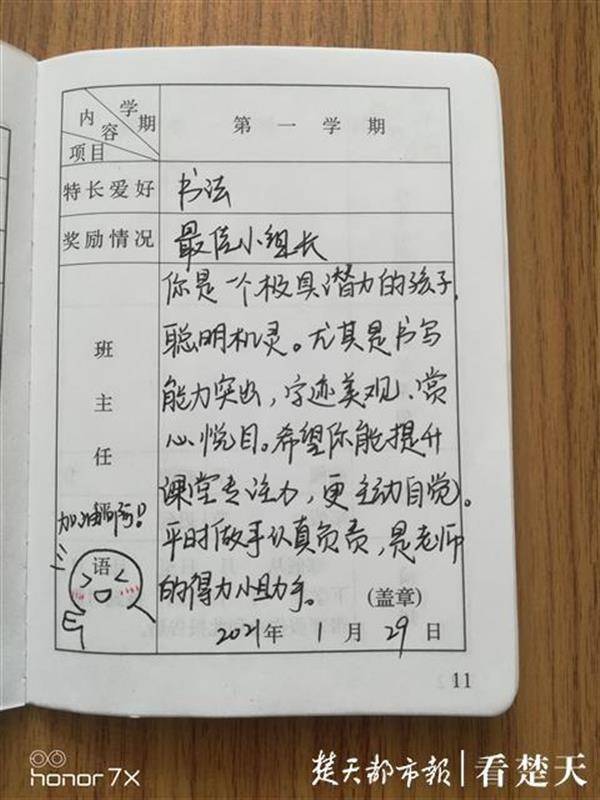 学期
内容
项目
第一学期
特长爱好
书法
奖励情况
最佳小组长
班主任评语
你是一个极具潜力的孩子,
聪明机灵。尤其是书写
能力突出,字迹美观、赏
心悦目。希望你能提升
课堂专注力,更主动自觉。
平时做事认真负责,是老师
的得力小助手。
加油啊!
(盖章)
2021年1月29日
11
honor 7X
楚天都市报|看楚天